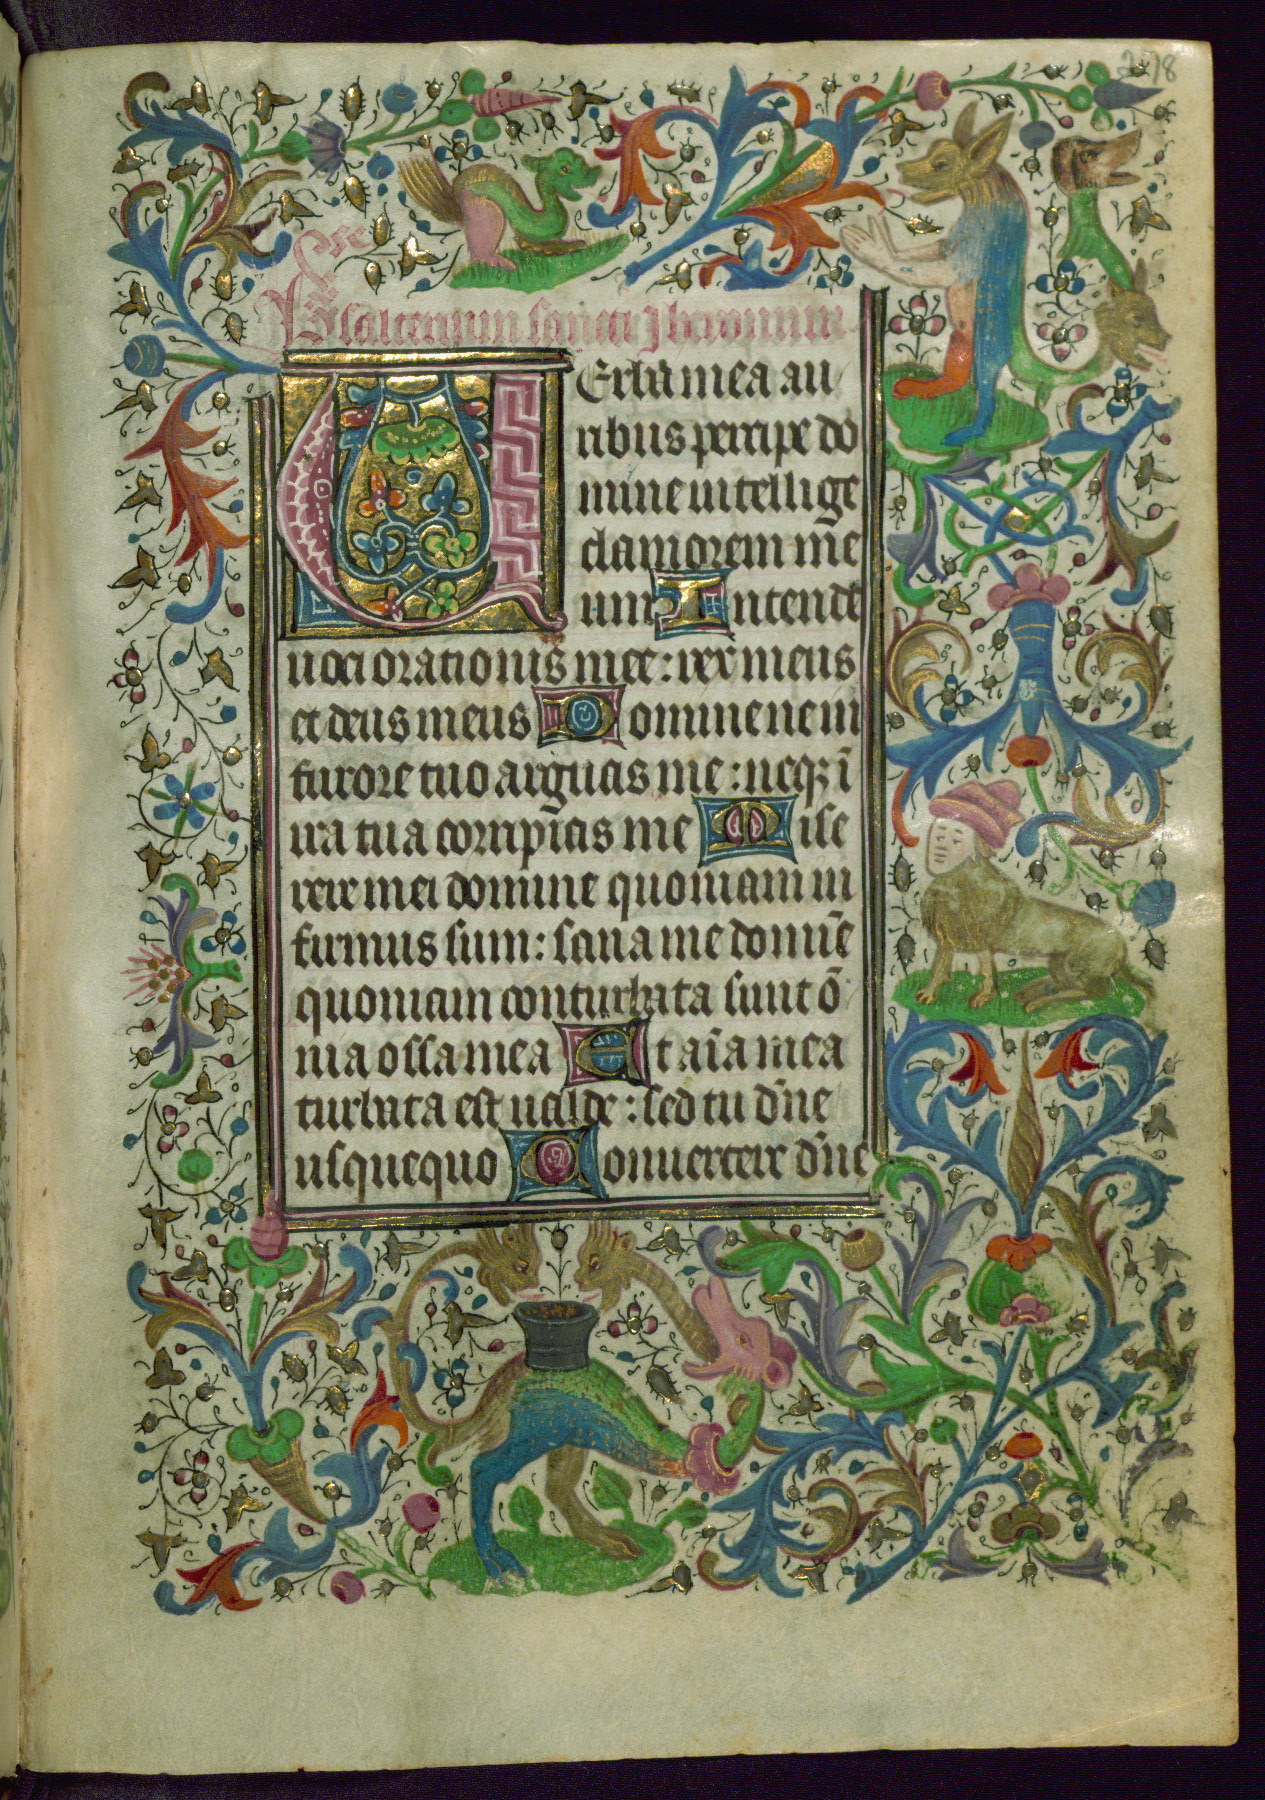 278
Psalterium sancti Jheronimi
VErba mea au
ribus percipe do
mine intellige
clamorem me
um Intende
uoci orationis mee : rex meus
et deus meus Domine ne in
furore tuo arguas me : neqꝫ ī
ira tua corripias me Mise
rere mei domine quoniam in
firmus sum : sana me domīe
quoniam conturbata sunt ō
nia ossa mea Et aīa mea
turbata est ualde : sed tu dn̄e
usquequo Conuertere dn̄e